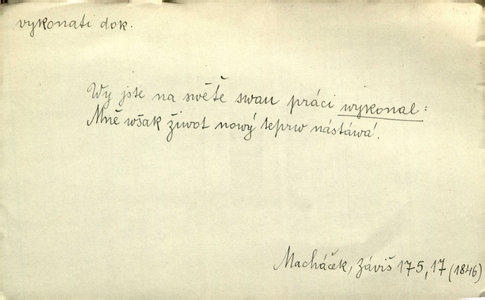 vykonati dok.
Wy jste na swětě swau práci wykonal:
Mně wšak život nowý teprw nástáwá.
Macháček, Záviš 175,17 (1846)